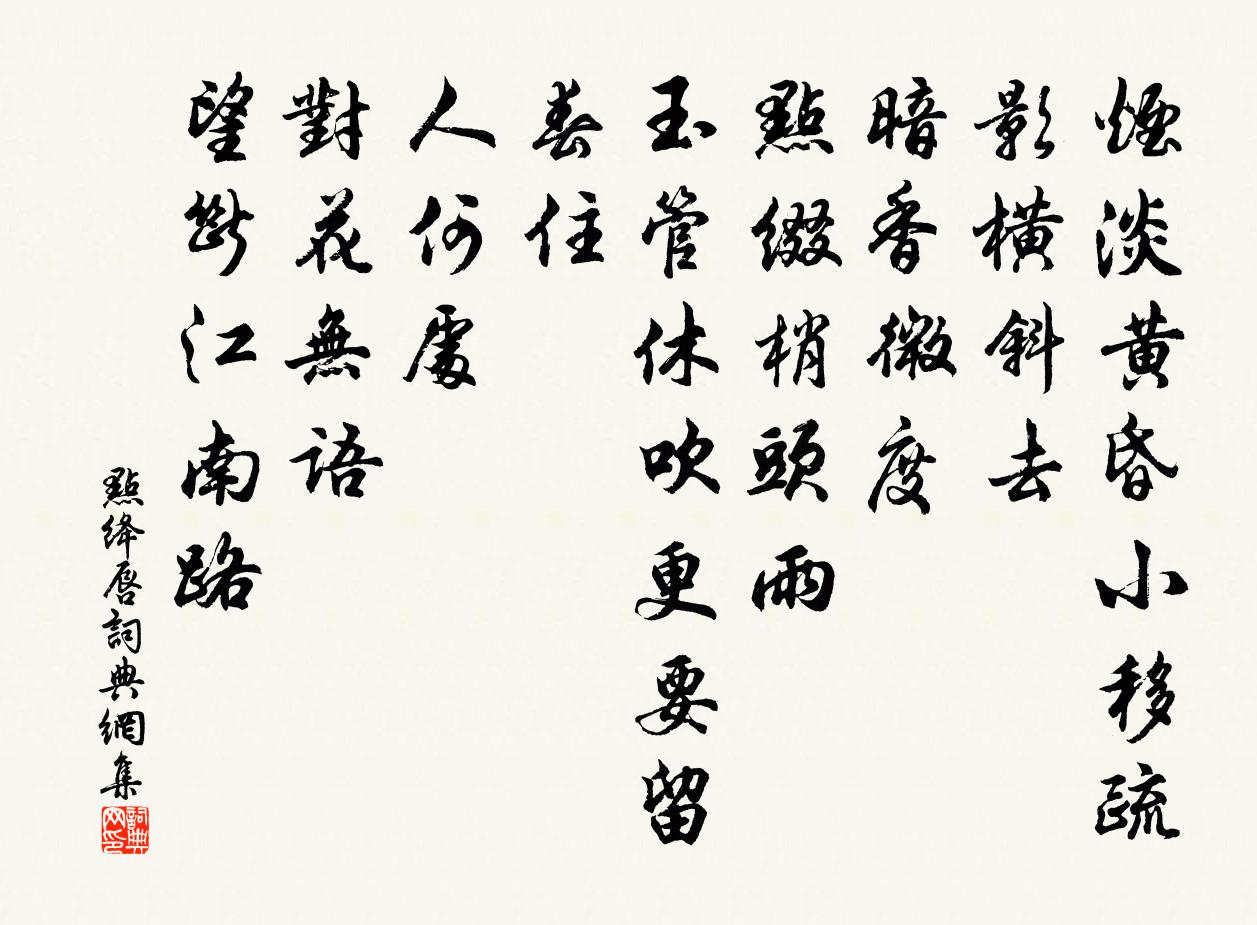 煙淡黃昏小移疏
影橫斜去
暗香微度
點綴梢頭雨
玉管休吹更要留
春住
人何處
對花無語
望斷江南路
點絳唇詞典網集
詞典网印